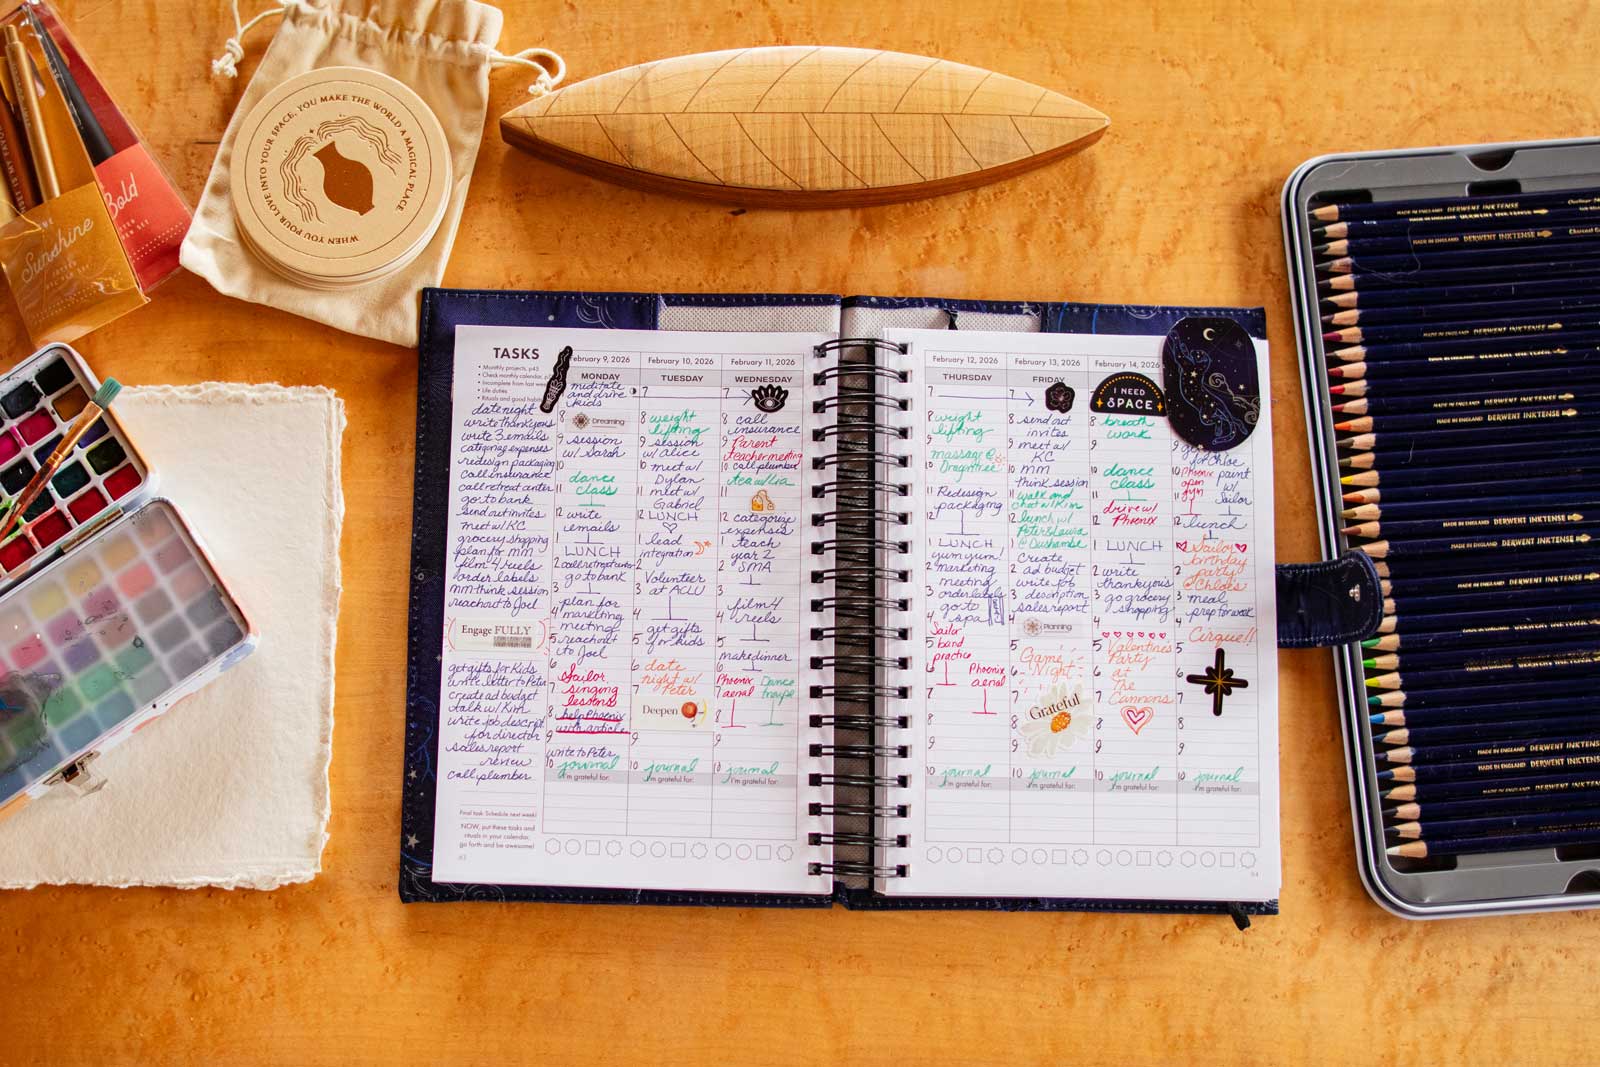 WHEN YOU POUR LOVE INTO YOUR SPACE, YOU MAKE THE WORLD A MAGICAL PLACE
THE
Sunshine
Bold
TASKS
• Monthly projects, p43
• Check monthly calendar,
• Incomplete from last week
• Life duties
• Rituals and good habits
date night
write thankyous
write 3 emails
categorize expenses
redesign packaging
call insurance
call retreat center
go to bank
send out invites
meet w/ KC
grocery shopping
plan for mm
film 4 reels
order labels
mm think session
reach out to Joel
Engage FULLY
get gifts for Kids
write letter to Peter
create ad budget
talk w/ Kim
write job descript
for director
sales report
review
call plumber
Final task: Schedule next week!
NOW, put these tasks and
rituals in your calendar,
go forth and be awesome!
63
February 9, 2026
MONDAY
meditate
and drive
kids
8 Dreaming
9 session
w/ Sarah
10
dance
class
11
12 write
emails
1
LUNCH
2 call retreat center
go to bank
3
plan for
4 marketing
meeting
5 reach out
to Joel
6
Sailor
7 singing
lessons
8 help Phoenix
with article
9
write to Peter
10 journal
I'm grateful for:
February 10, 2026
TUESDAY
7
8 weight
lifting
9 session
w/ alice
10 meet w/
Dylan
11 meet w/
Gabriel
12 LUNCH
1 lead
integration
2
Volunteer
3 at ACLU
4
get gifts
5 for kids
6 date
night w/
7 Peter
Deepen
8
9
10 journal
I'm grateful for:
February 11, 2026
WEDNESDAY
7
8 call
insurance
9 Parent
teacher meeting
10 call plumber
tea w/ Lia
11
12 categorize
expenses
1 teach
year 2
2 SMA
3
film 4
4 reels
5
make dinner
6
Phoenix Dance
7 aerial troupe
8
9
10 journal
I'm grateful for:
February 12, 2026
THURSDAY
7
8 weight
lifting
9
massage @
10 Dragontree
11 Redesign
packaging
12
1 LUNCH
yum yum!
2 marketing
meeting
3 order labels
go to
4 spa
Sailor
5 band
practice
6 Phoenix
aerial
7
8
9
10 journal
I'm grateful for:
February 13, 2026
FRIDAY
7
8 send out
invites
9 meet w/
KC
10 mm
think session
11 walk and
chat w/ Kim
12 lunch w/
Peter & Laura
1 @ Dushanbe
Create
2 ad budget
write job
3 description
sales report
4 Planning
5
Game
6 Night
7
Grateful
8
9
10 journal
I'm grateful for:
February 14, 2026
I NEED
SPACE
8 breath
work
9
10 dance
class
11
drive w/
12 Phoenix
1 LUNCH
2 write
thankyous
3 go grocery
shopping
4
5 Valentines
Party
6 at
The
7 Cannons
8
9
10 journal
I'm grateful for:
9
for Chloe
10 Phoenix paint
open w/
gym Sailor
11
12 lunch
1 Sailor
birthday
2 party
@ Chloe's
3 meal
prep for week
4
Cirque!!
5
6
7
8
9
10 journal
I'm grateful for:
64
MADE IN ENGLAND DERWENT INKTENSE
MADE IN ENGLAND DERWENT INKTENSE
MADE IN ENGLAND DERWENT INKTENSE
MADE IN ENGLAND DERWENT INKTENSE